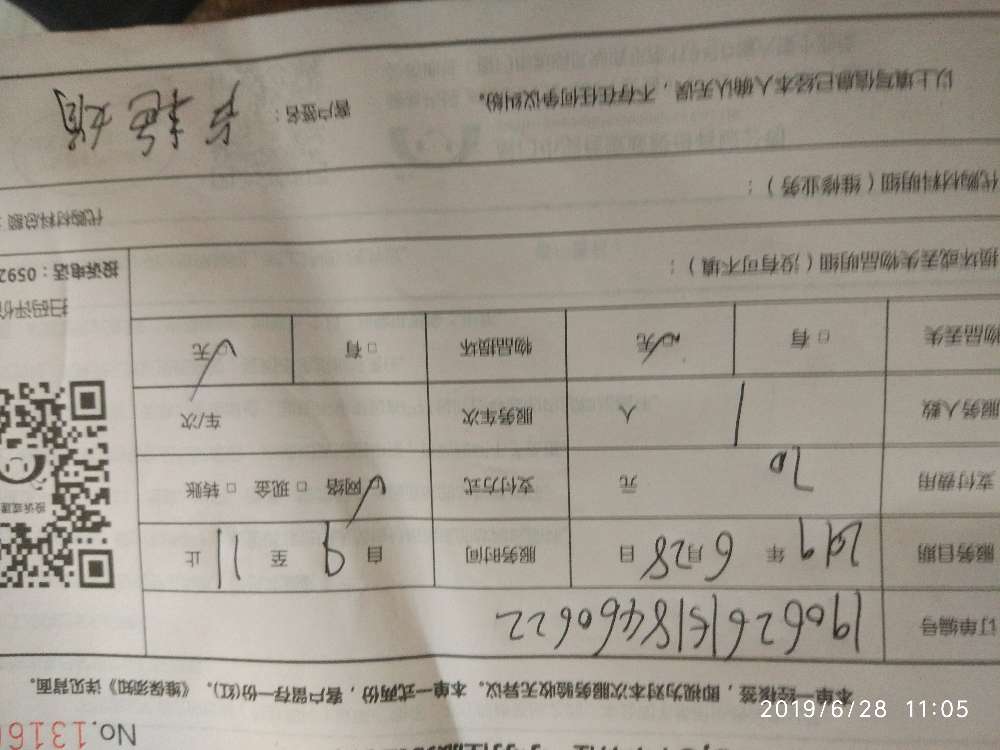 No.1316
本单一经核签，即视为对本次服务验收无异议。本单一式两份，客户留存一份(红)。《维保须知》详见背面。
订单编号 19062615184660622
服务日期 2019 年 6 月 28 日 服务时间 自 9 至 11 止
支付费用 70 元 支付方式 网络 □ 现金 □ 转账
服务人数 1 人 服务车次 车/次
物品丢失 □ 有 □ 无 物品损坏 □ 有 □ 无
投诉或建
扫码评价
投诉电话：0592
损坏或丢失物品明细（没有可不填）：
代购材料明细（维修业务）：
代购材料总额：
以上填写信息已经本人确认无误，不存在任何争议纠纷。
客户签名：
2019/6/28 11:05